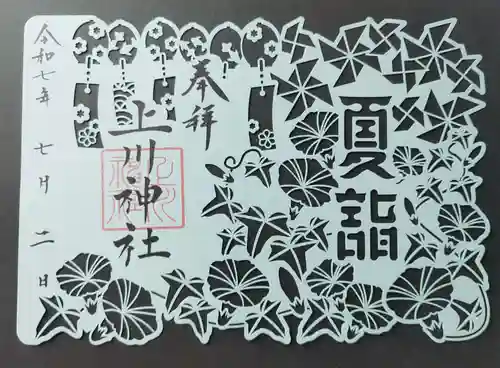 夏詣
奉拝
上川神社
令和七年 七月 十一日